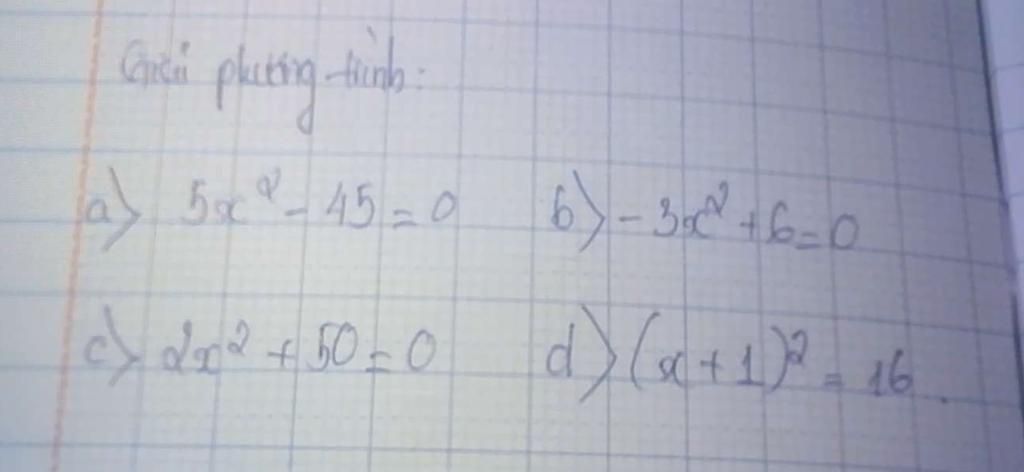 Giải phương trình:
a) 5x² - 45 = 0 b) - 3x² + 6 = 0
c) 2x² + 50 = 0 d) (x + 1)² = 16